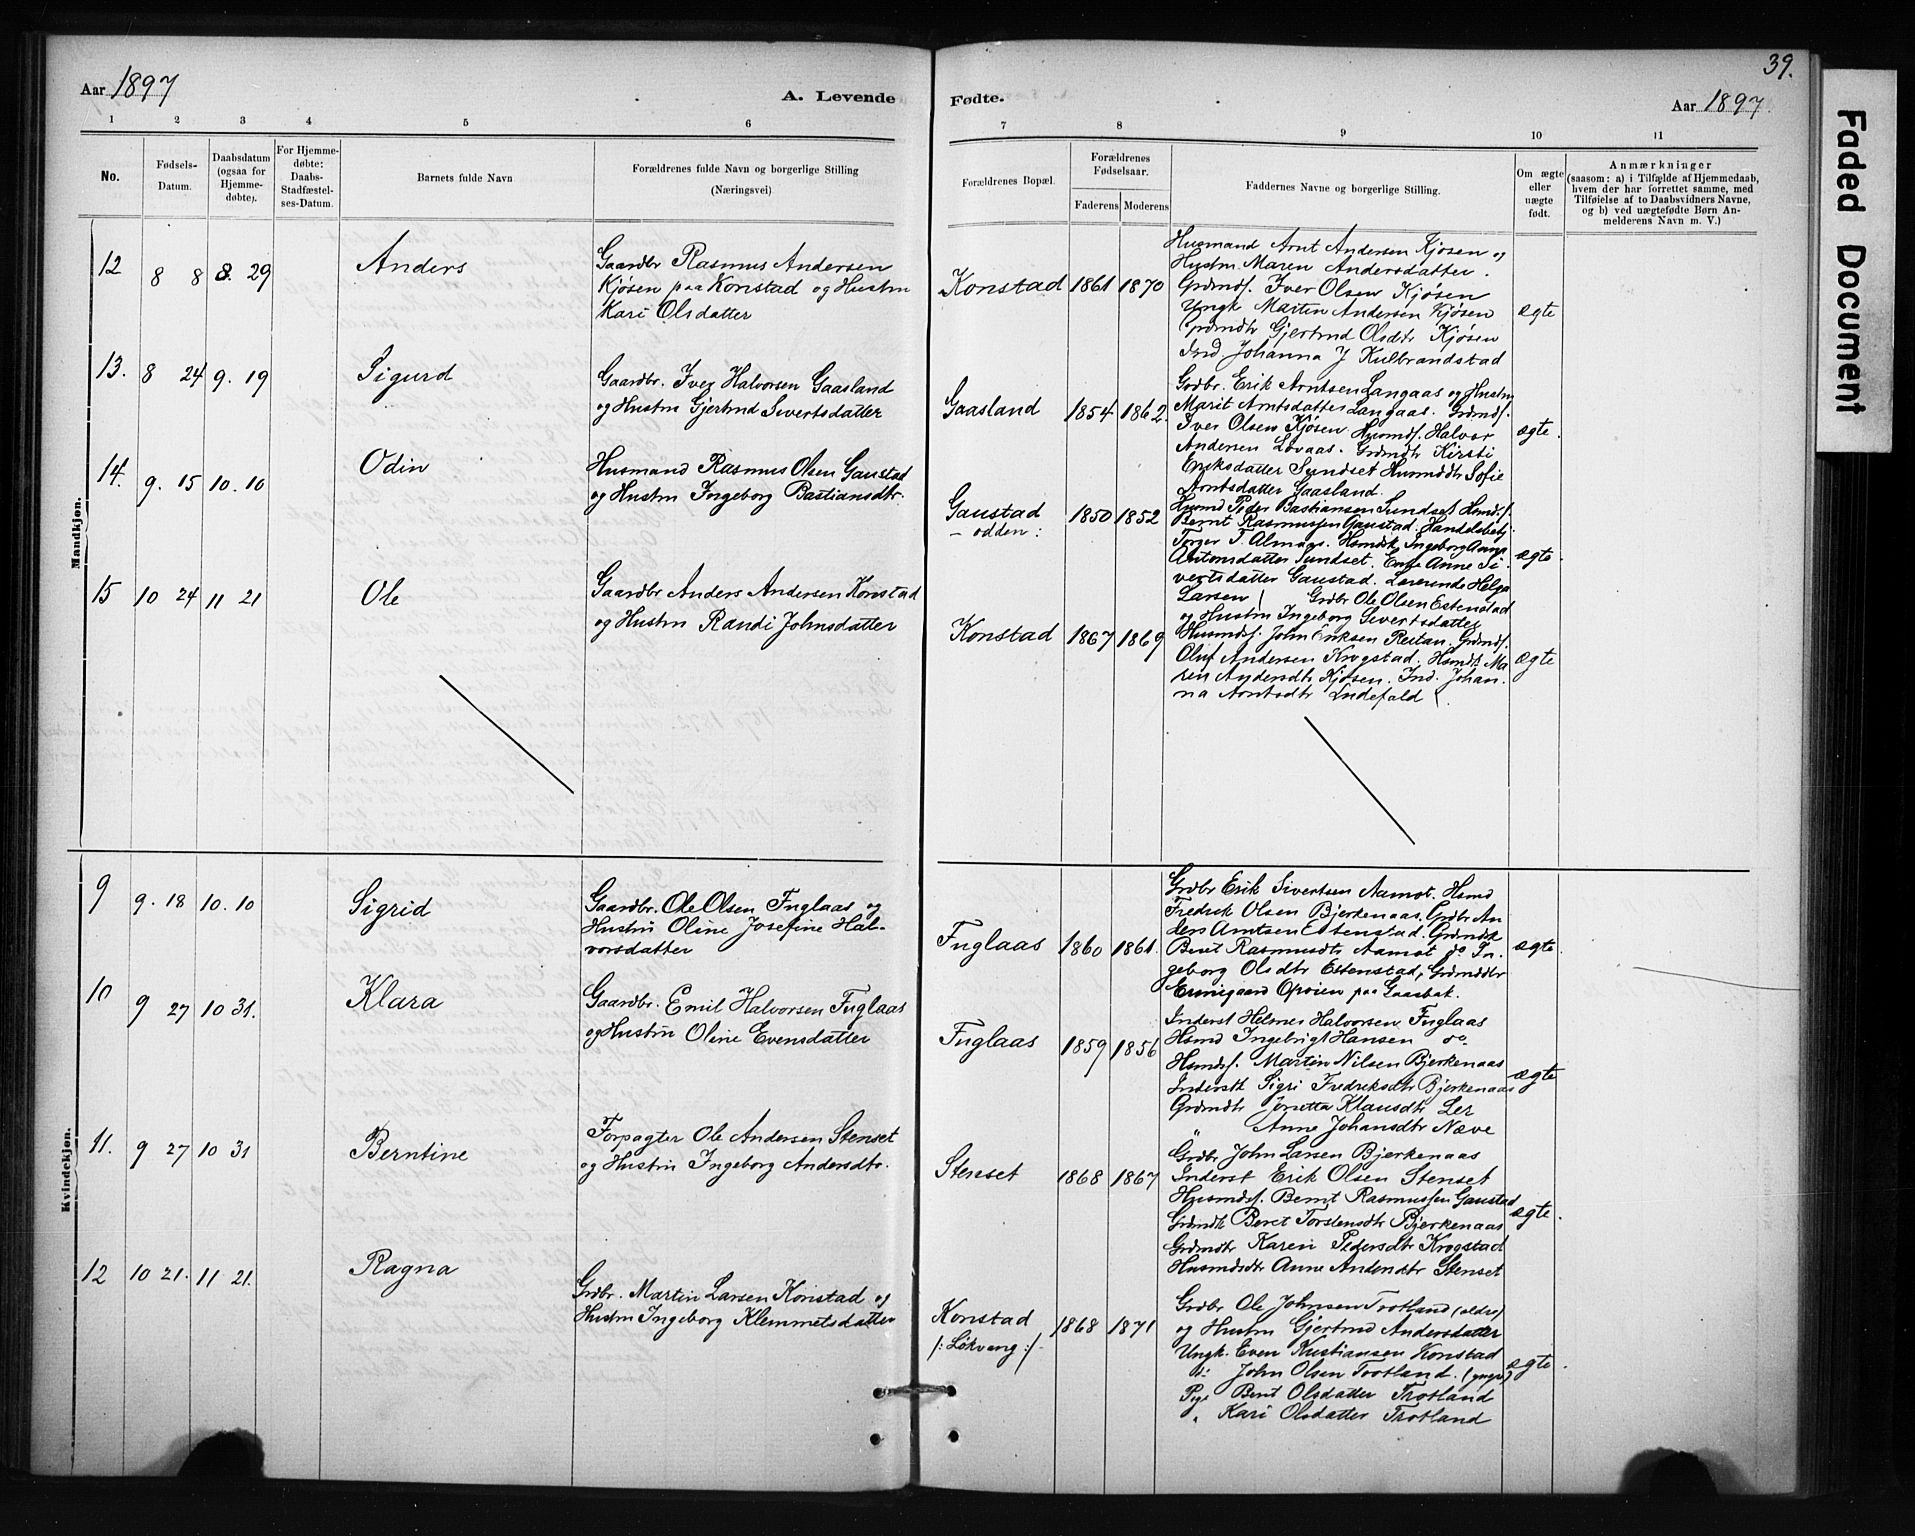 39.
Aar 1897
A. Levende
Fødte.
Aar 1897.
1 2 3 4 5 6
7 8 9 10 11
No.
Fødsels-
Datum.
Daabsdatum
(ogsaa for
Hjemme-
døbte).
For Hjemme-
døbte:
Daabs-
Stadfæstel-
ses-Datum.
Barnets fulde Navn
Forældrenes fulde Navn og borgerlige Stilling
(Næringsvei)
Forældrenes Bopæl.
Forældrenes
Fødselsaar.
Faderens Moderens
Faddernes Navne og borgerlige Stilling.
Om ægte
eller
uægte
født.
Anmærkninger
(saasom: a) i Tilfælde af Hjemmedaab,
hvem der har forrettet samme, med
Tilføielse af to Daabsvidners Navne,
og b) ved uægtefødte Børn An-
melderens Navn m. V.)
Mandkjøn.
12 8 8 8. 29 Anders
Gaardbr Rasmus Andersen
Kjøsen paa Konstad og Hustru
Kari Olsdatter
Konstad 1861 1870
Husmand Arnt Andersen Kjøsen og
Hustru Maren Andersdatter.
Grdmds. Iver Olsen Kjøsen
Ungk Martin Andersen Kjøsen
Grdmdtr Gjertrud Olsdtr Kjøsen
Ind Johanna J Kulbrandstad
ægte
13. 8 24 9. 19 Sigurd
Gaardbr. Iver Halvorsen Gaasland
og Hustru Gjertrud Sivertsdatter
Gaasland 1854 1862.
Grdbr. Erik Arntsen Langaas og Hustru
Marit Arntsdatter Langaas. Grdmds.
Iver Olsen Kjøsen. Husmds. Halvor
Andersen Løvaas. Grdmdtr Kirsti
Eriksdatter Sundset Husmddtr Sofie
Arntsdatter Gaasland.
ægte.
14. 9. 15 10. 10 Odin
Husmand Rasmus Olsen Gaustad
og Hustru Ingeborg Bastiansdtr.
Gaustad
– odden:
1850 1852
Husmd Peder Bastiansen Sundset Husmds.
Bernt Rasmussen Gaustad. Handelsbetj.
Torger T. Almaas. Hsmdsk Ingeborg Anna
Antonsdatter Sundset. Enke Anne Si-
vertsdatter Gaustad. Lærerinde Helga
Larsen
ægte
15 10 24 11 21 Ole
Gaardbr Anders Andersen Konstad
og Hustru Randi Johnsdatter
Konstad 1867 1869
Grdbr Ole Olsen Estenstad
og Hustru Ingeborg Sivertsdatter
Husmds. John Eriksen Reitan. Grdmds.
Oluf Andersen Krogstad. Hsmdt Ma
ren Andersdtr Kjøsen. Ind. Johan-
na Arntsdtr Lindefald
ægte
Kvindekjøn.
9 9. 18 10. 10 Sigrid
Gaardbr. Ole Olsen Fuglaas og
Hustru Oline Josefine Hal-
vorsdatter
Fuglaas 1860 1861.
Grdbr Erik Sivertsen Aamot. Hsmd
Fredrik Olsen Bjerkenaas. Grdbr An
ders Arntsen Estenstad. Grdmdsk
Beret Rasmusdtr Aamot do In-
geborg Olsdtr Estenstad, Grdmddtr
Ermegaard Opøien paa Gaasbak.
ægte.
10 9 27 10 31. Klara
Gaardbr. Emil Halvorsen Fuglaas
og Hustru Oline Evensdatter
Fuglaas 1859 1856
Inderst Helmer Halvorsen Fuglaas
Hsmd Ingebrigt Hansen do
Husmds. Martin Nilsen Bjerkenaas
Inderstk Sigri Fredriksdtr Bjerkenaas
Grdmdtr Jonetta Klausdtr Ler
" Anne Johansdtr Næve
ægte
11. 9 27 10 31 Berntine
Forpagter Ole Andersen Stenset
og Hustru Ingeborg Andersdtr.
Stenset 1868 1867
Grdbr John Larsen Bjerkenaas
Inderst Erik Olsen Stenset
Husmds. Bernt Rasmussen Gaustad
Grdmdt Beret Torstensdtr Bjerkenaas
Grdmdtr Karen Pedersdtr Krogstad
Husmdsdtr Anne Andersdtr Stenset
ægte.
12 10 21. 11 21. Ragna
Grdbr. Martin Larsen Konstad og
Hustru Ingeborg Klemmetsdatter
Konstad
/: Løkvang :/
1868 1871
Grdbr Ole Johnsen Trotland (ældre)
og Hustru Gjertrud Andersdatter
Ungk. Even Kristiansen Konstad
" John Olsen Trotland. (yngre)
Pige Beret Olsdatter Trotland
" Kari Olsdatter Trotland
ægte.
Faded Document